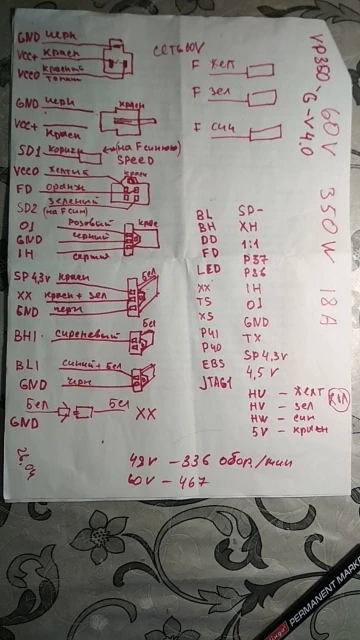 VP350-G-V4.0
60V 350W 18A
GND черн
VCC+ красн
VCCO красный
тонкий
GND черн
VCC+
красн
красн
SD1 коричн
(на F синюю)
SPEED
VCCO желтый
красн
FD оранж
SD2 зеленый
(на F син)
OJ розовый
GND черный
1H серый
SP 4,3V красн
бел
XX красн + зел
GND черн
BH1 сиреневый
бел
BL1 синий + бел
GND черн
бел
бел XX
GND
F жел
F зел
F син
BL SD-
BH XH
DD 1:1
FD P37
LED P36
XX 1H
TS OJ
XS GND
P41 TX
P40 SP4,3V
EBS 4,5V
JTAG1
HV – желт
HV – зел
HW – син
5V – красн
48V – 336 обор./мин
60V – 467
PERMANENT MARKER